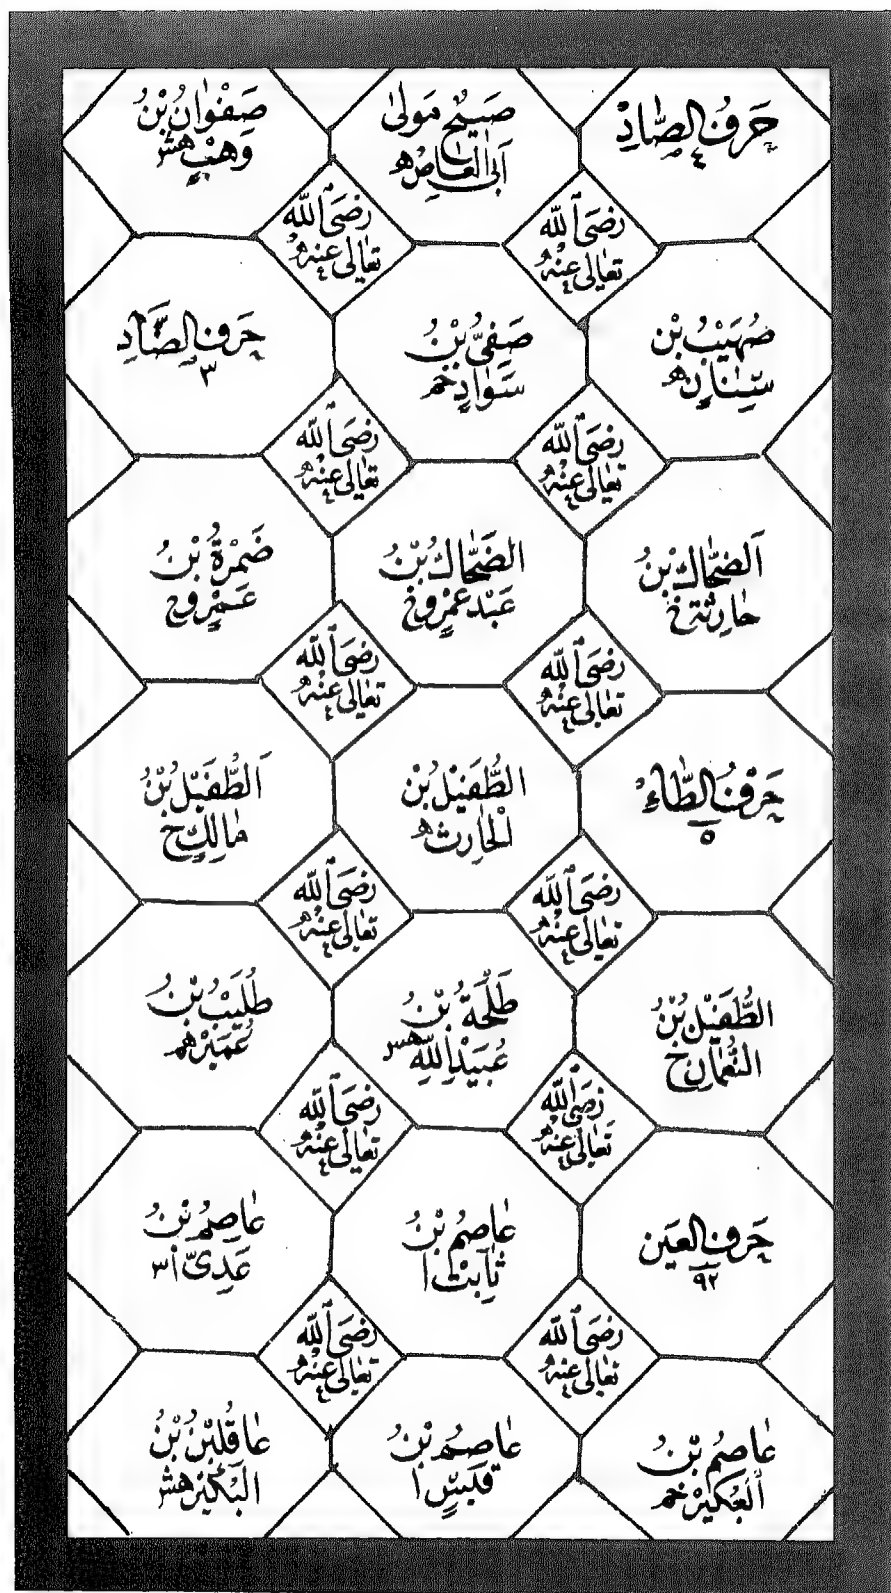 حَرْفُ الصَّادِ
٤
صَبِيحٌ مَولىٰ
اَبِى الْعَاصِ ه
صَفْوَانُ بْنُ
وَهْبٍ هش
رَضِىَ ٱللّٰه
تَعَالٰى عَنْهُ
رَضِىَ ٱللّٰه
تَعَالٰى عَنْهُ
صُهَيْبُ بْن
سِنَانٍ ه
صَفِىُّ بْنُ
سَوَادٍ خم
حَرْفُ الضَّادِ
٣
رَضِىَ ٱللّٰه
تَعَالٰى عَنْهُ
رَضِىَ ٱللّٰه
تَعَالٰى عَنْهُ
اَلضَّحَّاكُ بْنُ
حَارِثَةَ خ
الضَّحَّاكُ بْنُ
عَبْدِ عَمْرٍو خ
ضَمْرَةُ بْنُ
عَمْرٍو خ
رَضِىَ ٱللّٰه
تَعَالٰى عَنْهُ
رَضِىَ ٱللّٰه
تَعَالٰى عَنْهُ
حَرْفُ الطَّاءِ
٥
الطُّفَيْلُ بْنُ
الْحَارِث ه
اَلطُّفَيْلُ بْنُ
مَالِكٍ خ
رَضِىَ ٱللّٰه
تَعَالٰى عَنْهُ
رَضِىَ ٱللّٰه
تَعَالٰى عَنْهُ
الطُّفَيْلُ بْنُ
النُّعْمَانِ خ
طَلْحَةُ بْنُ
عُبَيْدِ اللّٰهِ هس
طُلَيْبُ بْنُ
عُمَيْرٍ هم
رَضِىَ ٱللّٰه
تَعَالٰى عَنْهُ
رَضِىَ ٱللّٰه
تَعَالٰى عَنْهُ
حَرْفُ العَيْن
٩٢
عَاصِمُ بْنُ
ثَابِتٍ ا
عَاصِمُ بْنُ
عَدِىٍّ ا ٣
رَضِىَ ٱللّٰه
تَعَالٰى عَنْهُ
رَضِىَ ٱللّٰه
تَعَالٰى عَنْهُ
عَاصِمُ بْنُ
الْعُكَيْرِ خم
عَاصِمُ بْنُ
قَيْسٍ ا
عَاقِلُ بْنُ
الْبُكَيْرِ هش